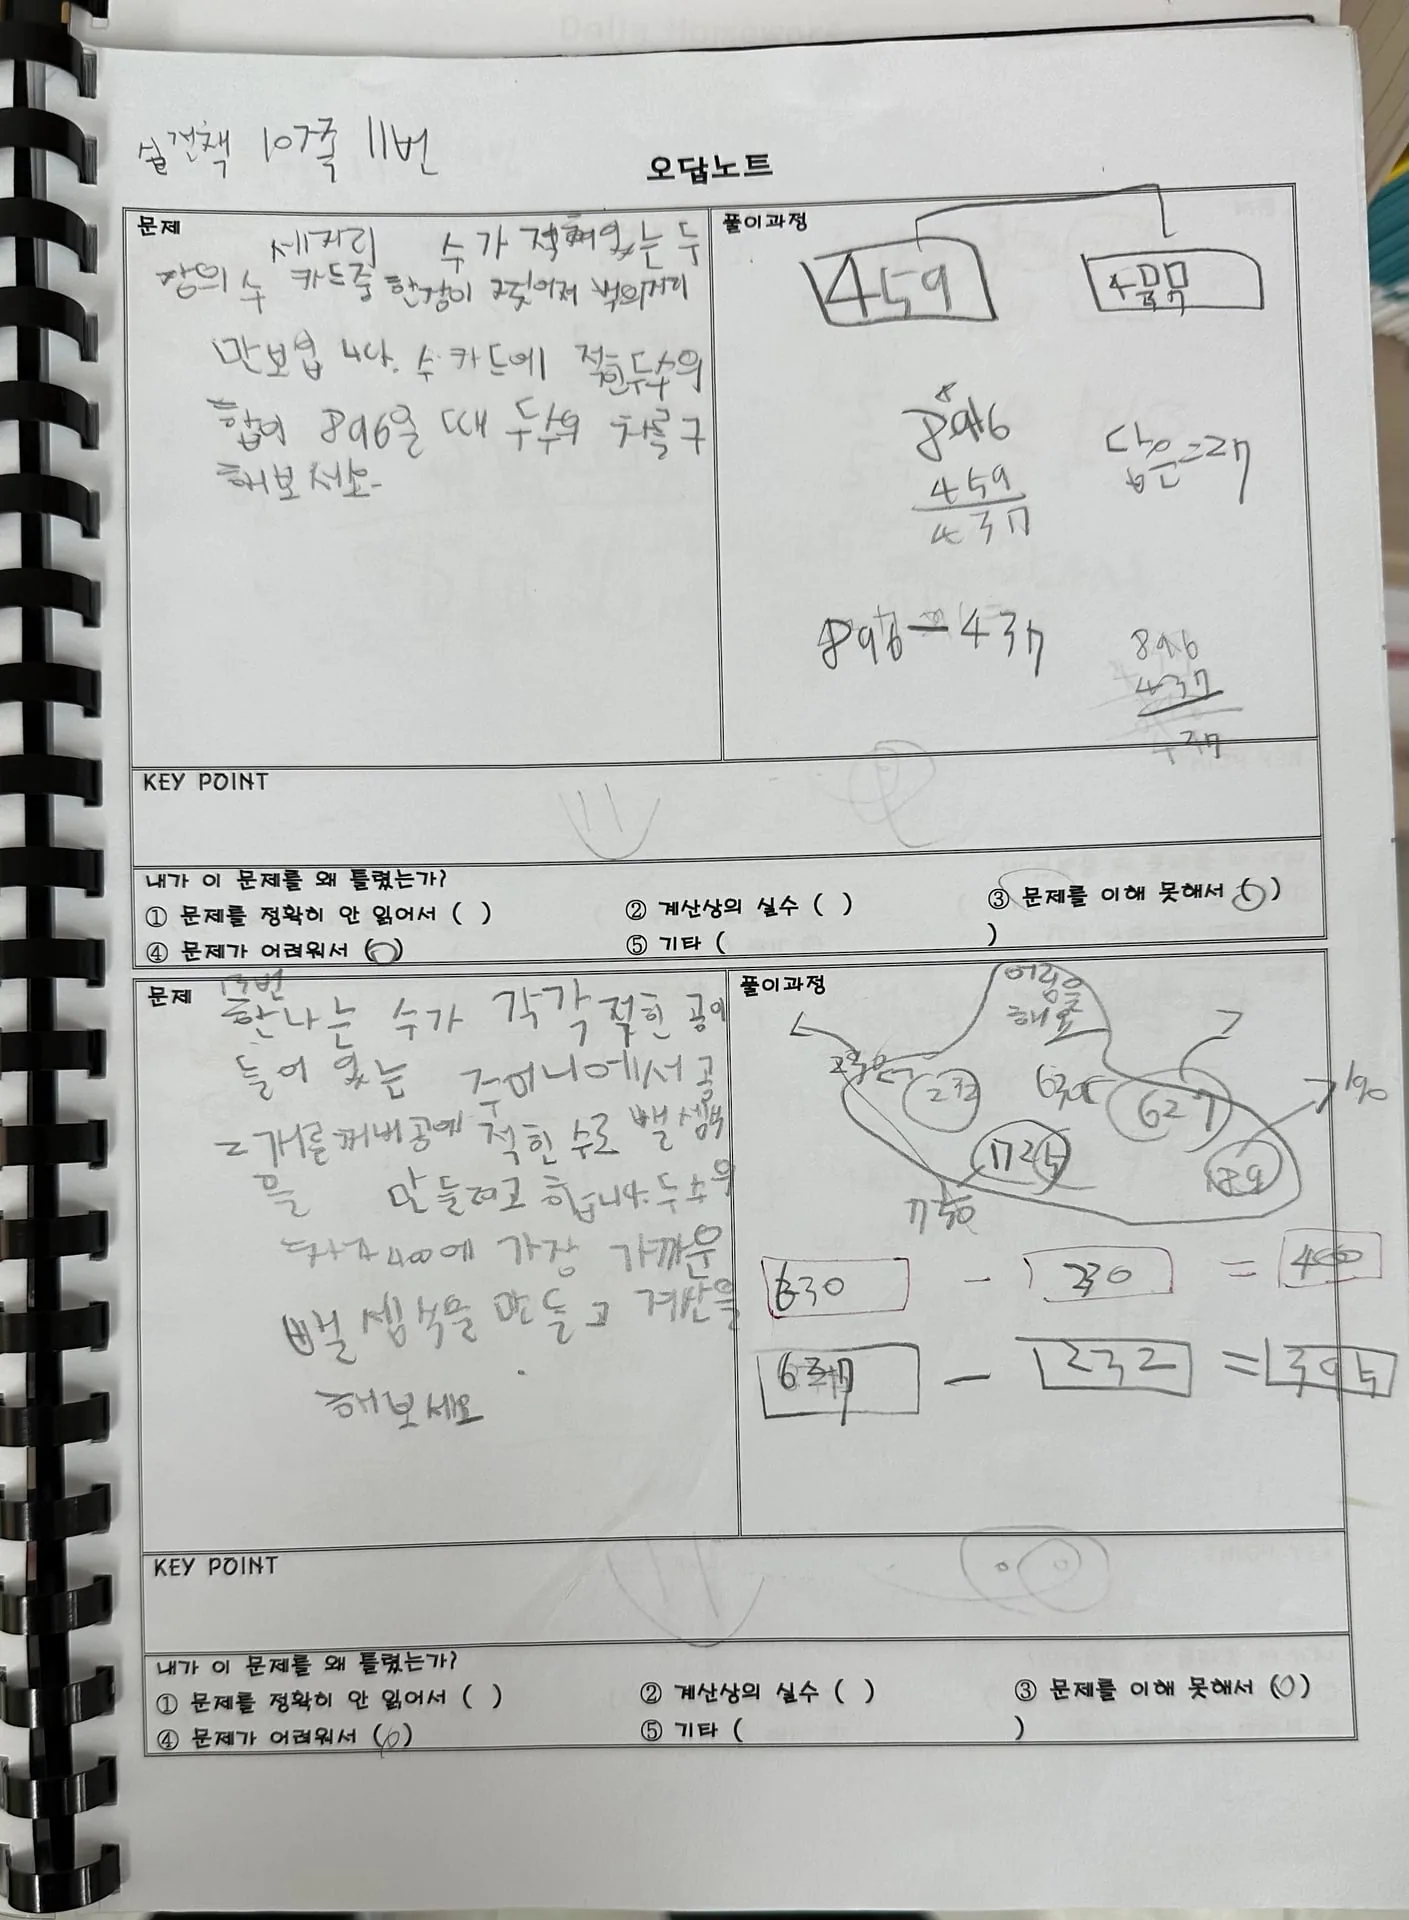 실전책 107쪽 11번
오답노트
문제
세자리 수가 적혀있는 두
장의 수 카드중 한장이 찢어져 백의자리
만보입니다. 수 카드에 적힌두수의
합이 896을 때 두수의 차를 구
해보세요.
풀이과정
459
4
896
459
437
답은=27
896-437
896
437
KEY POINT
내가 이 문제를 왜 틀렸는가?
① 문제를 정확히 안 읽어서 ( )
② 계산상의 실수 ( )
③ 문제를 이해 못해서 ( )
④ 문제가 어려워서 ( )
⑤ 기타 ( )
문제
13번
한나는 수가 각각 적힌 공이
들어 있는 주머니에서 공
2개를꺼내공에 적힌 수로 뺄셈식
을 만들려고 합니다. 두 수의
차가400에 가장 가까운
뺄셈식을 만들고 계산을
해보세요
풀이과정
어림을
해요
232
630
627
190
725
189
630 - 230 = 400
627 - 232 = 395
KEY POINT
내가 이 문제를 왜 틀렸는가?
① 문제를 정확히 안 읽어서 ( )
② 계산상의 실수 ( )
③ 문제를 이해 못해서 (0)
④ 문제가 어려워서 ( )
⑤ 기타 ( )